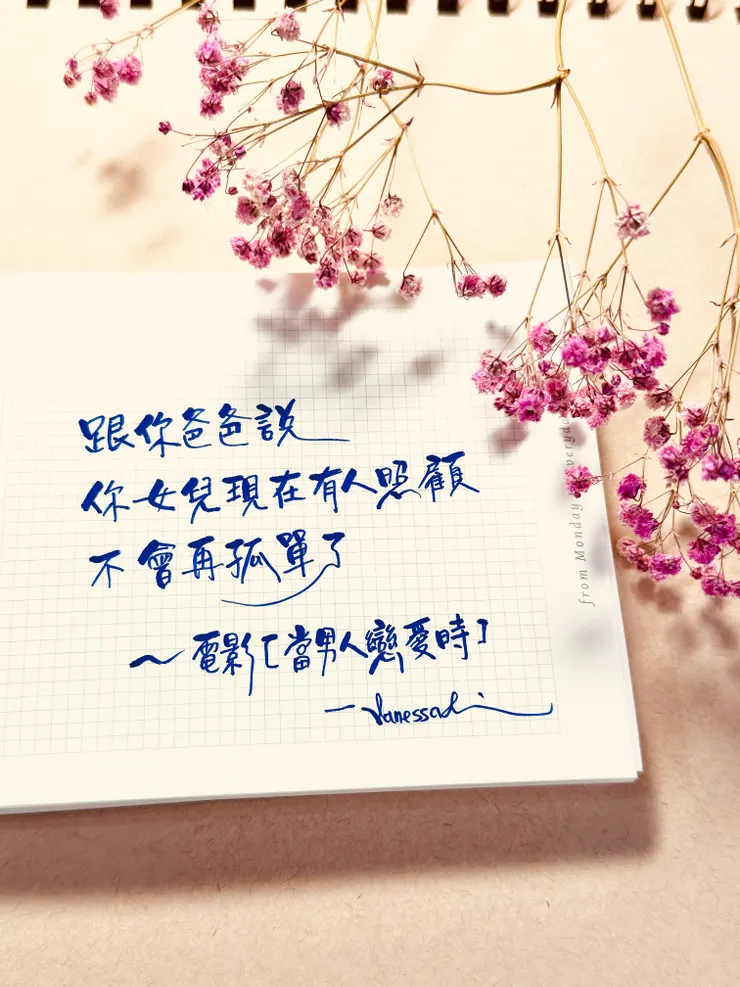 跟你爸爸說
你女兒現在有人照顧
不會再孤單了
～電影「當男人戀愛時」
from Monday